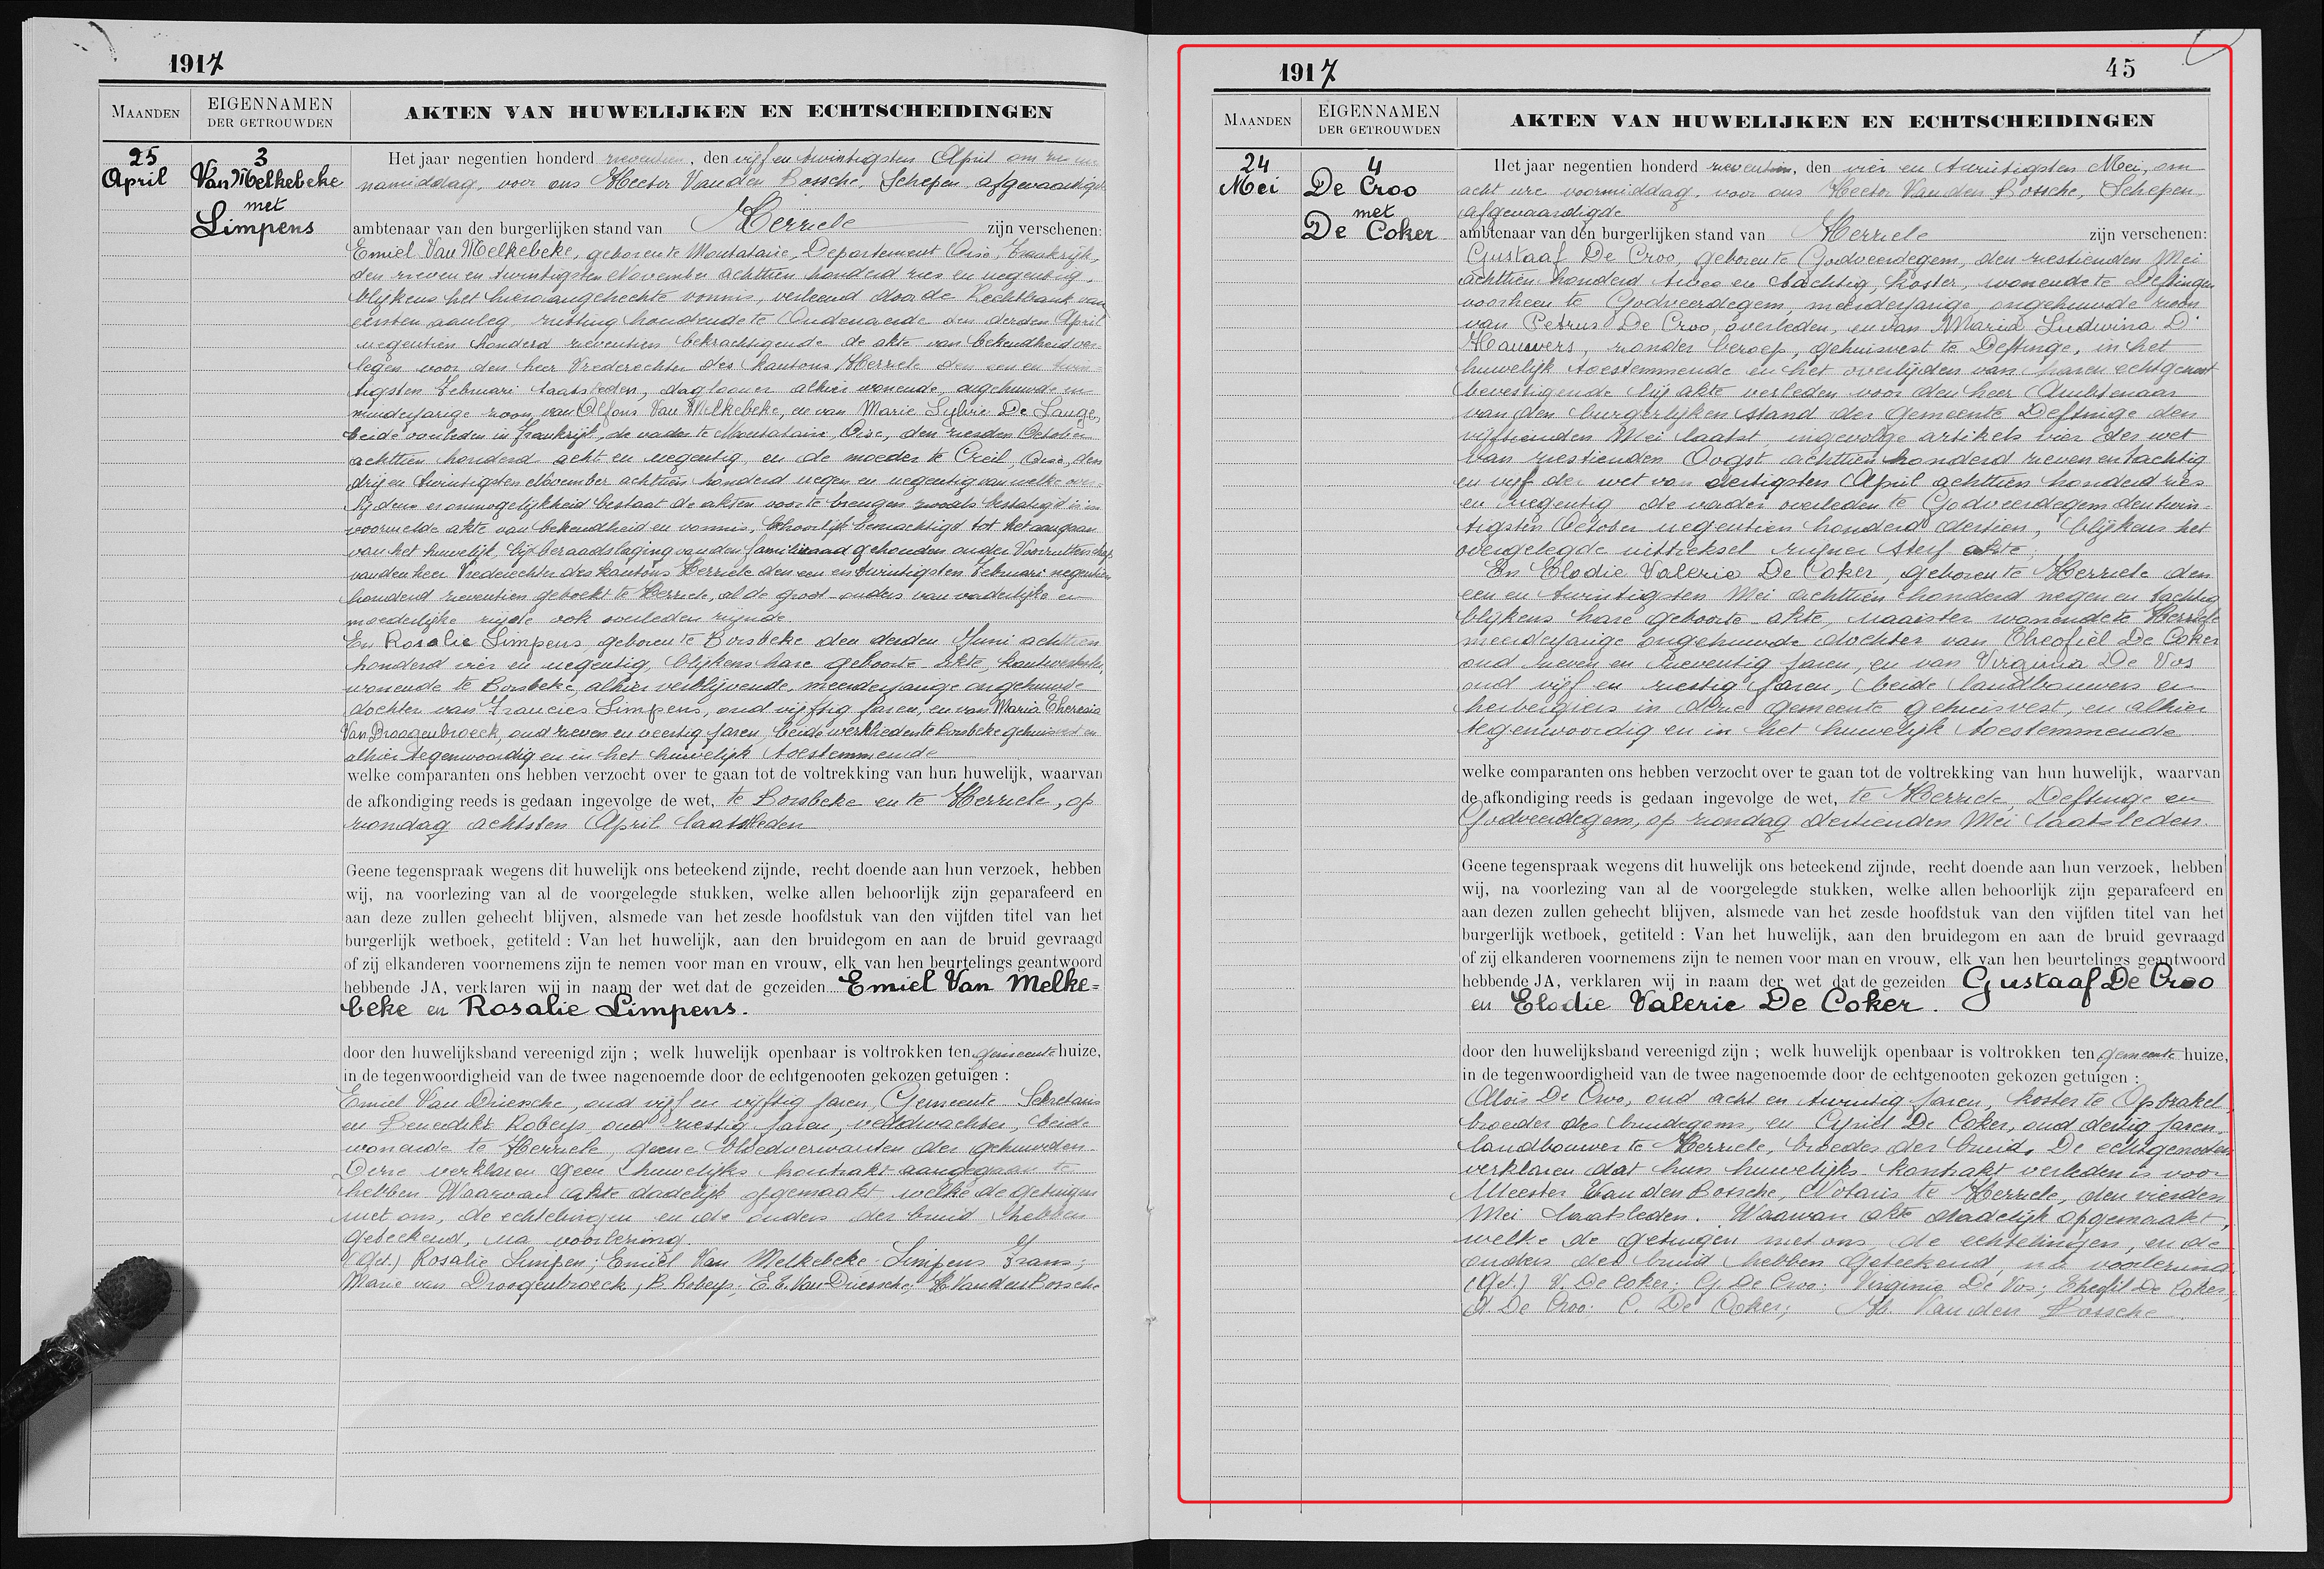 1917
MAANDEN
EIGENNAMEN
DER GETROUWDEN
AKTEN VAN HUWELIJKEN EN ECHTSCHEIDINGEN
25
April
3
Van Melkebeke
met
Limpens
Het jaar negentien honderd zeventien, den vijf en twintigsten April om
namiddag, voor ons Hector Vanden Bossche, Schepen, afgevaardigde
ambtenaar van den burgerlijken stand van Herzele zijn verschenen:
Emiel Van Melkebeke, geboren te Montataire, Departement Oise, Frankrijk,
den zeven en twintigsten November achttien honderd zes en negentig,
blijkens het hieraangehechte vonnis, verleend door de Rechtbank van
eersten aanleg, zitting houdende te Oudenaarde den derden April
negentien honderd zeventien bekrachtigende de akte van bekendheid ver-
legen voor den heer Vrederechter des kantons Herzele den een en twin-
tigsten Februari laatsleden, daglooner alhier wonende, ongehuwde
minderjarige zoon van Alfons Van Melkebeke, en van Marie Sylvie De Lange,
beide overleden in Frankrijk, de vader te Montataire, Oise, den zesden October
achttien honderd acht en negentig, en de moeder te Creil, Oise, den
drij en twintigsten November achttien honderd negen en negentig van welke over-
lijdens er onmogelijkheid bestaat de akten voor te brengen zooals bestatigd is in
voormelde akte van bekendheid en vonnis, behoorlijk bemachtigd tot het aangaan
van het huwelijk, bij beraadslaging van den familieraad gehouden onder Voorzitterschap
van den heer Vrederechter des kantons Herzele den een en twintigsten Februari negentien
honderd zeventien geboekt te Herzele, al de groot-ouders van vaderlijke en
moederlijke zijde ook overleden zijnde.
En Rosalie Limpens, geboren te Borsbeke den derden Juni achttien
honderd vier en negentig, blijkens hare geboorte akte, kantwerkster,
wonende te Borsbeke, alhier verblijvende, meerderjarige ongehuwde
dochter van Francies Limpens, oud vijftig jaren, en van Maria Theresia
Van Droogenbroeck, oud zeven en veertig jaren, beide werklieden te Borsbeke gehuisvest en
alhier tegenwoordig en in het huwelijk toestemmende
welke comparanten ons hebben verzocht over te gaan tot de voltrekking van hun huwelijk, waarvan
de afkondiging reeds is gedaan ingevolge de wet, te Borsbeke en te Herzele, op
zondag achtsten April laatstleden
Geene tegenspraak wegens dit huwelijk ons beteekend zijnde, recht doende aan hun verzoek, hebben
wij, na voorlezing van al de voorgelegde stukken, welke allen behoorlijk zijn geparafeerd en
aan deze zullen gehecht blijven, alsmede van het zesde hoofdstuk van den vijfden titel van het
burgerlijk wetboek, getiteld : Van het huwelijk, aan den bruidegom en aan de bruid gevraagd
of zij elkanderen voornemens zijn te nemen voor man en vrouw, elk van hen beurtelings geantwoord
hebbende JA, verklaren wij in naam der wet dat de gezeiden Emiel Van Melke=
beke en Rosalie Limpens.
door den huwelijksband vereenigd zijn ; welk huwelijk openbaar is voltrokken ten gemeente huize,
in de tegenwoordigheid van de twee nagenoemde door de echtgenooten gekozen getuigen :
Emiel Van Driessche, oud vijf en vijftig jaren, Gemeente Sekretaris
en Benedikt Robeys, oud zestig jaren, veldwachter, beide
wonende te Herzele, geene bloedverwanten der gehuwden.
Deze verklaren geen huwelijks kontrakt aangegaan te
hebben. Waarvan akte dadelijk opgemaakt welke de getuigen
met ons, de echtelingen en de ouders der bruid hebben
geteekend, na voorlezing.
(Get.) Rosalie Limpen; Emiel Van Melkebeke; Limpens Frans;
Marie van Droogenbroeck; B. Robeys; E. E. Van Driessche; H. Vanden Bossche
1917
45
MAANDEN
EIGENNAMEN
DER GETROUWDEN
AKTEN VAN HUWELIJKEN EN ECHTSCHEIDINGEN
24
Mei
4
De Croo
met
De Coker
Het jaar negentien honderd zeventien, den vier en twintigsten Mei, om
acht ure voormiddag, voor ons Hector Vanden Bossche, Schepen
afgevaardigde
ambtenaar van den burgerlijken stand van Herzele zijn verschenen:
Gustaaf De Croo, geboren te Godveerdegem, den zestienden Mei
achttien honderd twee en tachtig, koster, wonende te Deftinge
voorheen te Godveerdegem, meerderjarige ongehuwde zoon
van Petrus De Croo, overleden, en van Maria Ludwina D'
Hauwers, zonder beroep, gehuisvest te Deftinge, in het
huwelijk toestemmende en het overlijden van haren echtgenoot
bevestigende bij akte verleden voor den heer Ambtenaar
van den burgerlijken stand der gemeente Deftinge den
vijftienden Mei laatst, ingevolge artikels vier der wet
van zestienden Oogst achttien honderd zeven en tachtig
en vijf der wet van dertigsten April achttien honderd zes
en negentig de vader overleden te Godveerdegem den twin-
tigsten October negentien honderd dertien, blijkens het
overgelegde uittreksel zijner sterf akte;
En Elodie Valerie De Coker, geboren te Herzele den
een en twintigsten Mei achttien honderd negen en tachtig
blijkens hare geboorte akte, naaister wonende te Herzele
meerderjarige ongehuwde dochter van Theofiel De Coker
oud zeven en zeventig jaren, en van Virginia De Vos
oud vijf en zestig jaren, beide landbouwers en
herbergiers in deze gemeente gehuisvest, en alhier
tegenwoordig en in het huwelijk toestemmende
welke comparanten ons hebben verzocht over te gaan tot de voltrekking van hun huwelijk, waarvan
de afkondiging reeds is gedaan ingevolge de wet, te Herzele, Deftinge en
Godveerdegem, op zondag dertienden Mei laatsleden.
Geene tegenspraak wegens dit huwelijk ons beteekend zijnde, recht doende aan hun verzoek, hebben
wij, na voorlezing van al de voorgelegde stukken, welke allen behoorlijk zijn geparafeerd en
aan dezen zullen gehecht blijven, alsmede van het zesde hoofdstuk van den vijfden titel van het
burgerlijk wetboek, getiteld : Van het huwelijk, aan den bruidegom en aan de bruid gevraagd
of zij elkanderen voornemens zijn te nemen voor man en vrouw, elk van hen beurtelings geantwoord
hebbende JA, verklaren wij in naam der wet dat de gezeiden Gustaaf De Croo
en Elodie Valerie De Coker.
door den huwelijksband vereenigd zijn ; welk huwelijk openbaar is voltrokken ten gemeente huize,
in de tegenwoordigheid van de twee nagenoemde door de echtgenooten gekozen getuigen :
Aloïs De Croo, oud acht en twintig jaren, koster te Opbrakel,
broeder des bruidegoms, en Cyriel De Coker, oud dertig jaren
landbouwer te Herzele, broeder der bruid. De echtgenooten
verklaren dat hun huwelijks kontrakt verleden is voor
Meester Van den Bossche, Notaris te Herzele, den vierden
Mei laatsleden. Waarvan akte dadelijk opgemaakt,
welke de getuigen met ons, de echtelingen, en de
ouders der bruid hebben geteekend, na voorlezing.
(Get.) V. De Coker; G. De Croo; Virginie De Vos; Theofil De Coker;
A. De Croo; C. De Coker; Hr. Vanden Bossche.